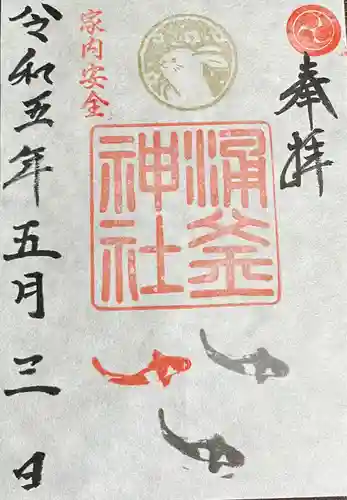 奉拝
涌釜
神社
家内安全
令和五年五月三日